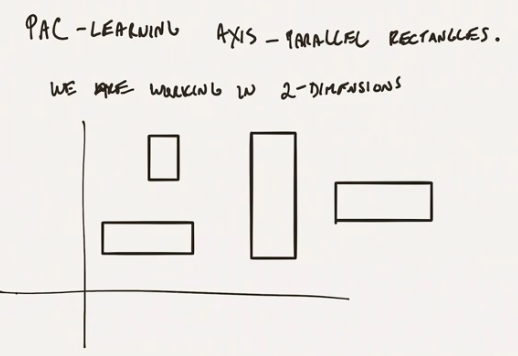 PAC-LEARNING AXIS-PARALLEL RECTANGLES.
WE ARE WORKING IN 2-DIMENSIONS